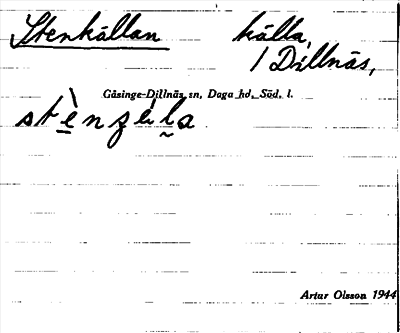 Stenkällan källa,
i Dillnäs,
Gåsinge-Dillnäs sn, Daga hd, Söd. l.
stènzéla
Artur Olsson 1944